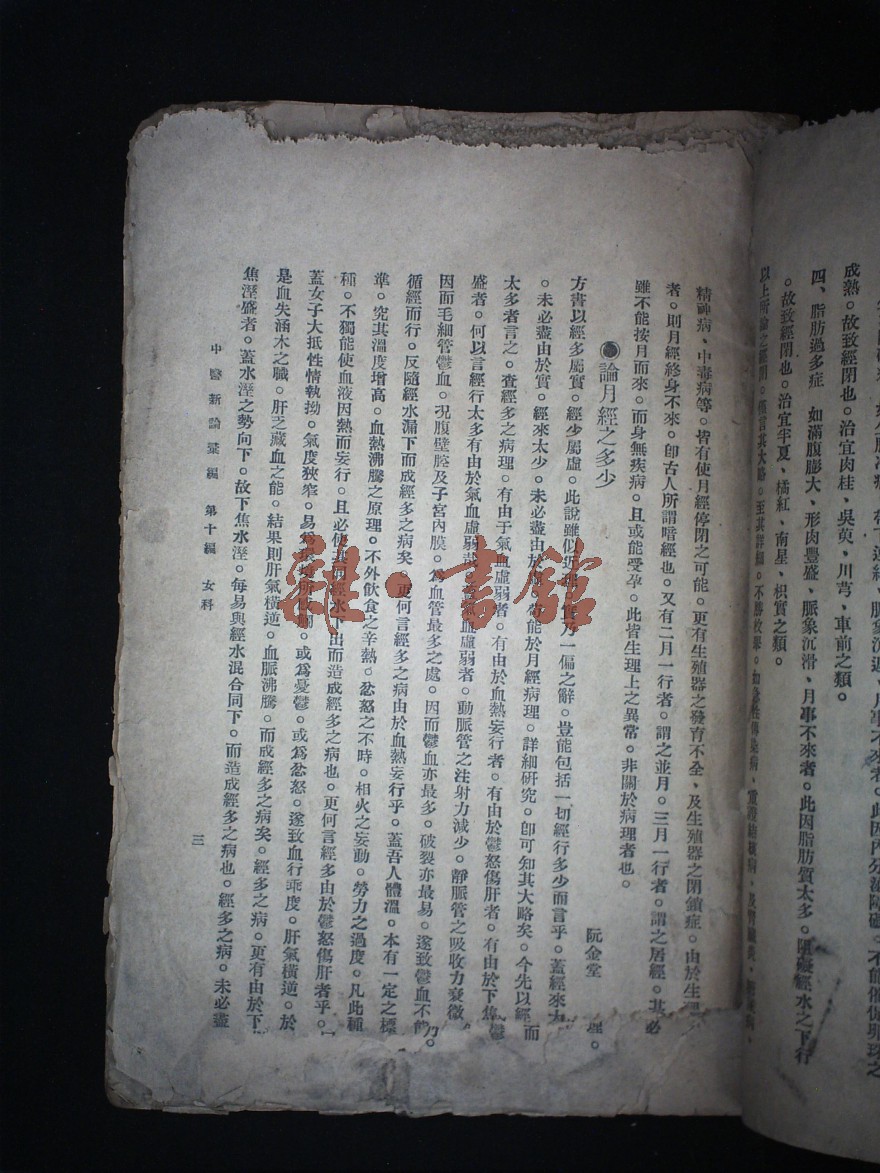 成熟。故致經閉也。治宜肉桂、吳萸、川芎、車前之類。
四、脂肪過多症 如滿腹膨大、形肉豐盛、脈象沉滑、月事不來者。此因脂肪質太多。阻礙經水之下行
。故致經閉也。治宜半夏、橘紅、南星、枳實之類。
以上所論之經閉。僅言其大略。至其詳細。不勝枚舉。如急性傳染病、
精神病、中毒病等。皆有使月經停閉之可能。更有生殖器之發育不全、及生殖器之閉鎖症。由於生理
者。則月經終身不來。卽古人所謂暗經也。又有二月一行者。謂之並月。三月一行者。謂之居經。其必
雖不能按月而來。而身無疾病。且或能受孕。此皆生理上之異常。非關於病理者也。
●論月經之多少 阮金堂
方書以經多屬實。經少屬虛。此說雖似近理。實乃一偏之辭。豈能包括一切經行多少而言乎。蓋經來太 理。
。未必盡由於實。經來太少。未必盡由於虛。能於月經病理。詳細研究。卽可知其大略矣。今先以經 而
太多者言之。查經多之病理。有由于氣血虛弱者。有由於血熱妄行者。有由於鬱怒傷肝者。有由於下焦 鬱
盛者。何以言經行太多有由於氣血虛弱哉。蓋氣血虛弱者。動脈管之注射力減少。靜脈管之吸收力衰微
因而毛細管鬱血。况腹壁膣及子宮內膜。爲血管最多之處。因而鬱血亦最多。破裂亦最易。遂致鬱血不 力。
循經而行。反隨經水漏下而成經多之病矣。更何言經多之病由於血熱妄行乎。蓋吾人體溫。本有一定之標
準。究其溫度增高。血熱沸騰之原理。不外飲食之辛熱。忿怒之不時。相火之妄動。勞力之過度。凡此種
種。不獨能使血液因熱而妄行。且必使其 經水下出而造成經多之病也。更何言經多由於鬱怒傷肝者乎。
蓋女子大抵性情執拗。氣度狹窄。易爲 所 。或爲憂鬱。或爲忿怒。遂致血行乖度。肝氣橫逆。於
是血失涵木之職。肝乏藏血之能。結果則肝氣橫逆。血脈沸騰。而成經多之病矣。經多之病。更有由於下
焦溼盛者。蓋水溼之勢向下。故下焦水溼。每易與經水混合同下。而造成經多之病也。經多之病。未必盡
中醫新論彙編 第十編 女科 三
雜·書館